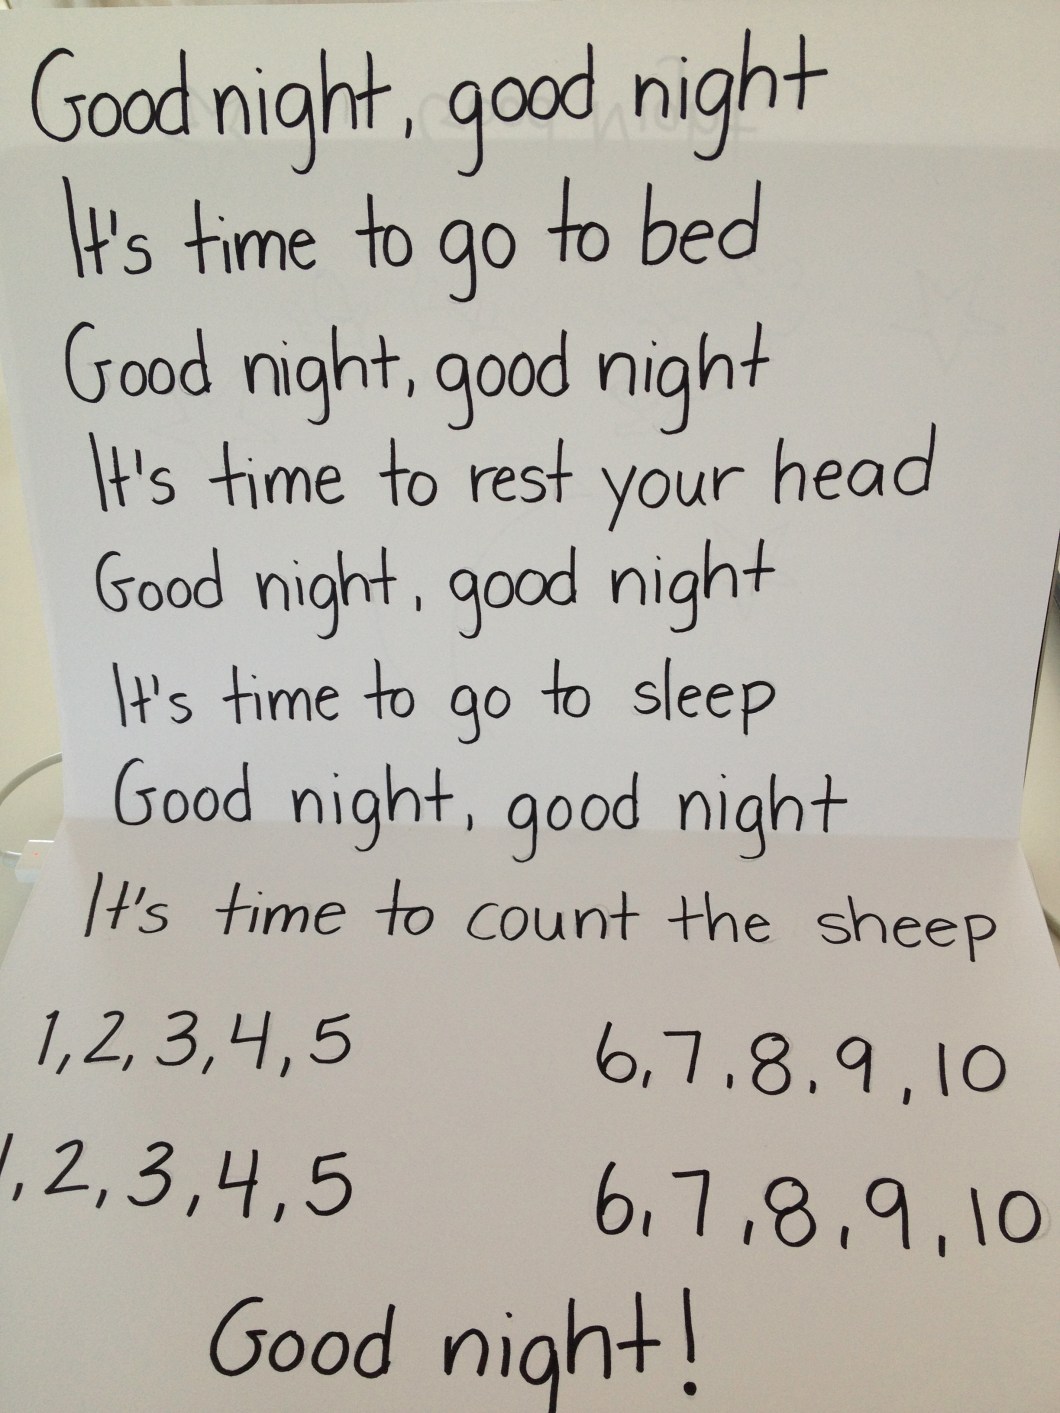 Good night, good night
It's time to go to bed
Good night, good night
It's time to rest your head
Good night, good night
It's time to go to sleep
Good night, good night
It's time to count the sheep
1, 2, 3, 4, 5 6, 7, 8, 9, 10
1, 2, 3, 4, 5 6, 7, 8, 9, 10
Good night!